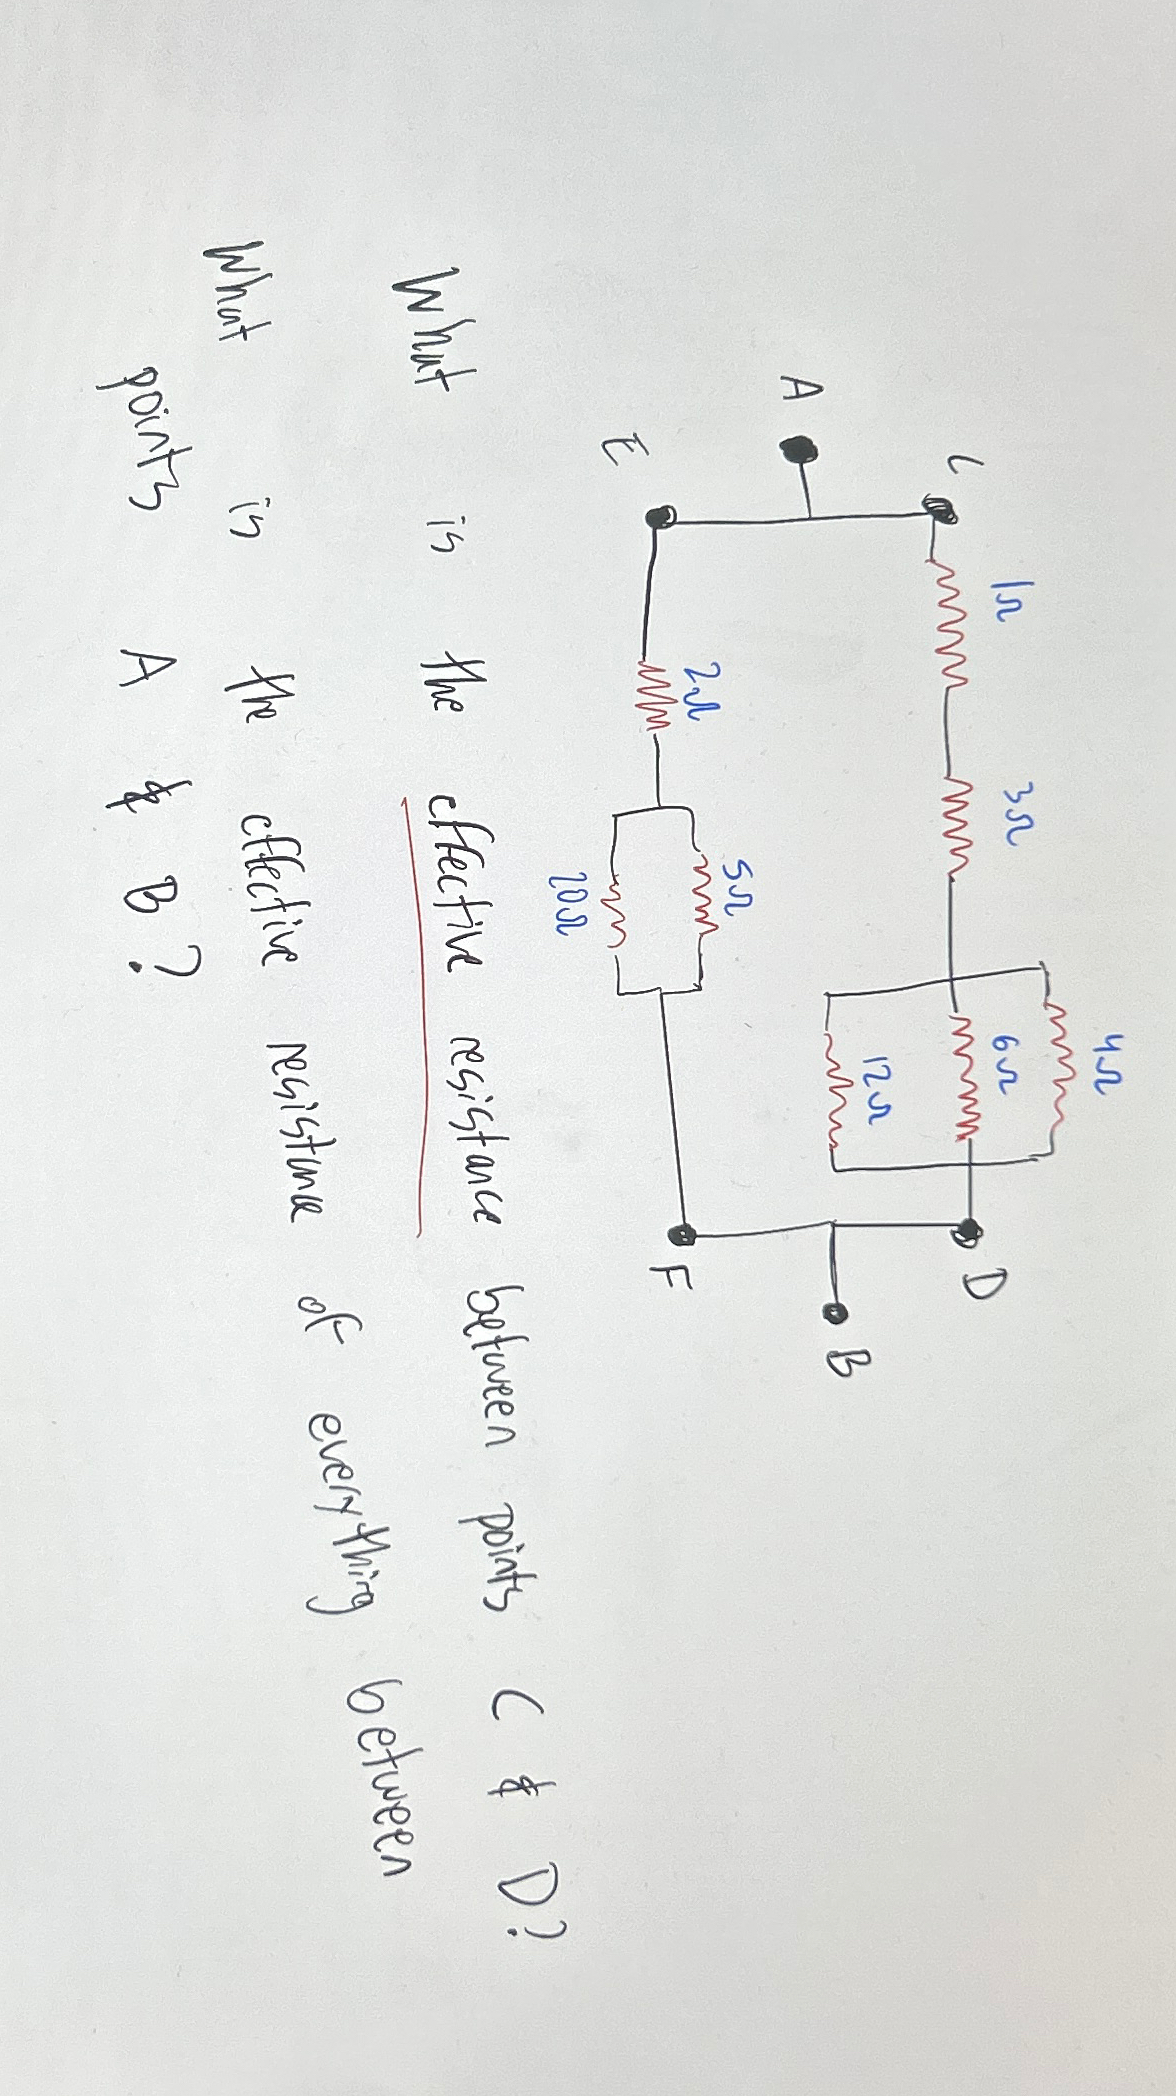 4Ω
1Ω 3Ω 6Ω
C D
12Ω
A B
2Ω 5Ω
E F
20Ω
What is the effective resistance between points C & D?
What is the effective resistance of everything between
points A & B?